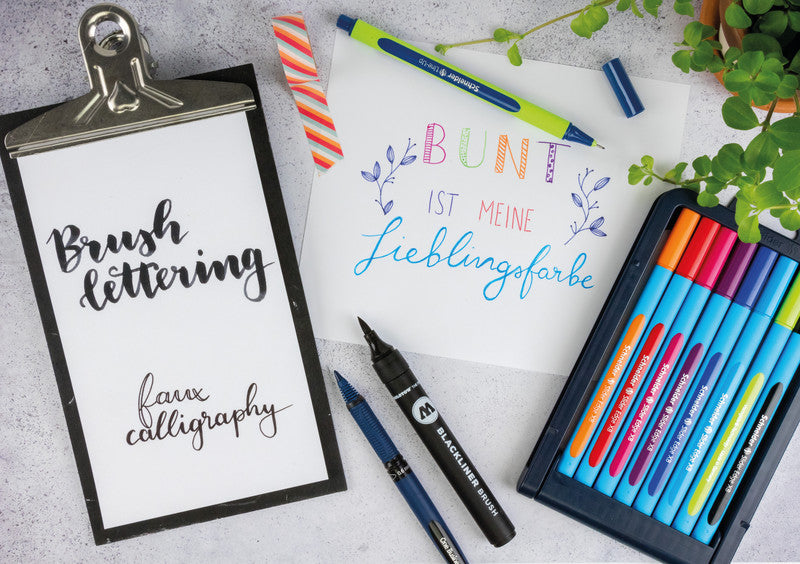 Brush
lettering
faux
calligraphy
Schneider Line-Up
BUNT
IST MEINE
Lieblingsfarbe
M
BLACKLINER BRUSH
One Busin
Schneider Slider Edge XB
Schneider Slider Edge XB
Schneider Slider Edge XB
Schneider Slider Edge XB
Schneider Slider Edge XB
Schneider Slider Edge XB
Schneider Slider Edge XB